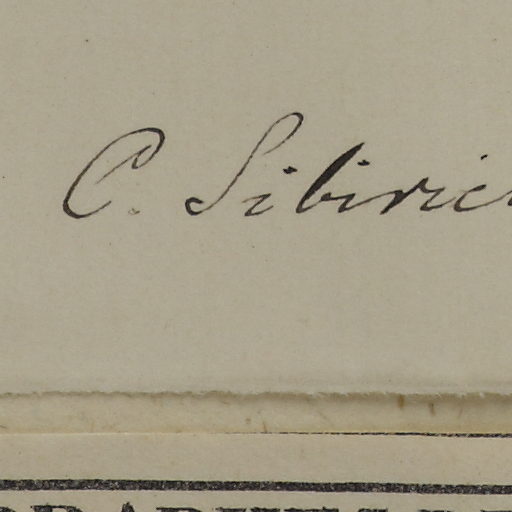 C. Sibiric